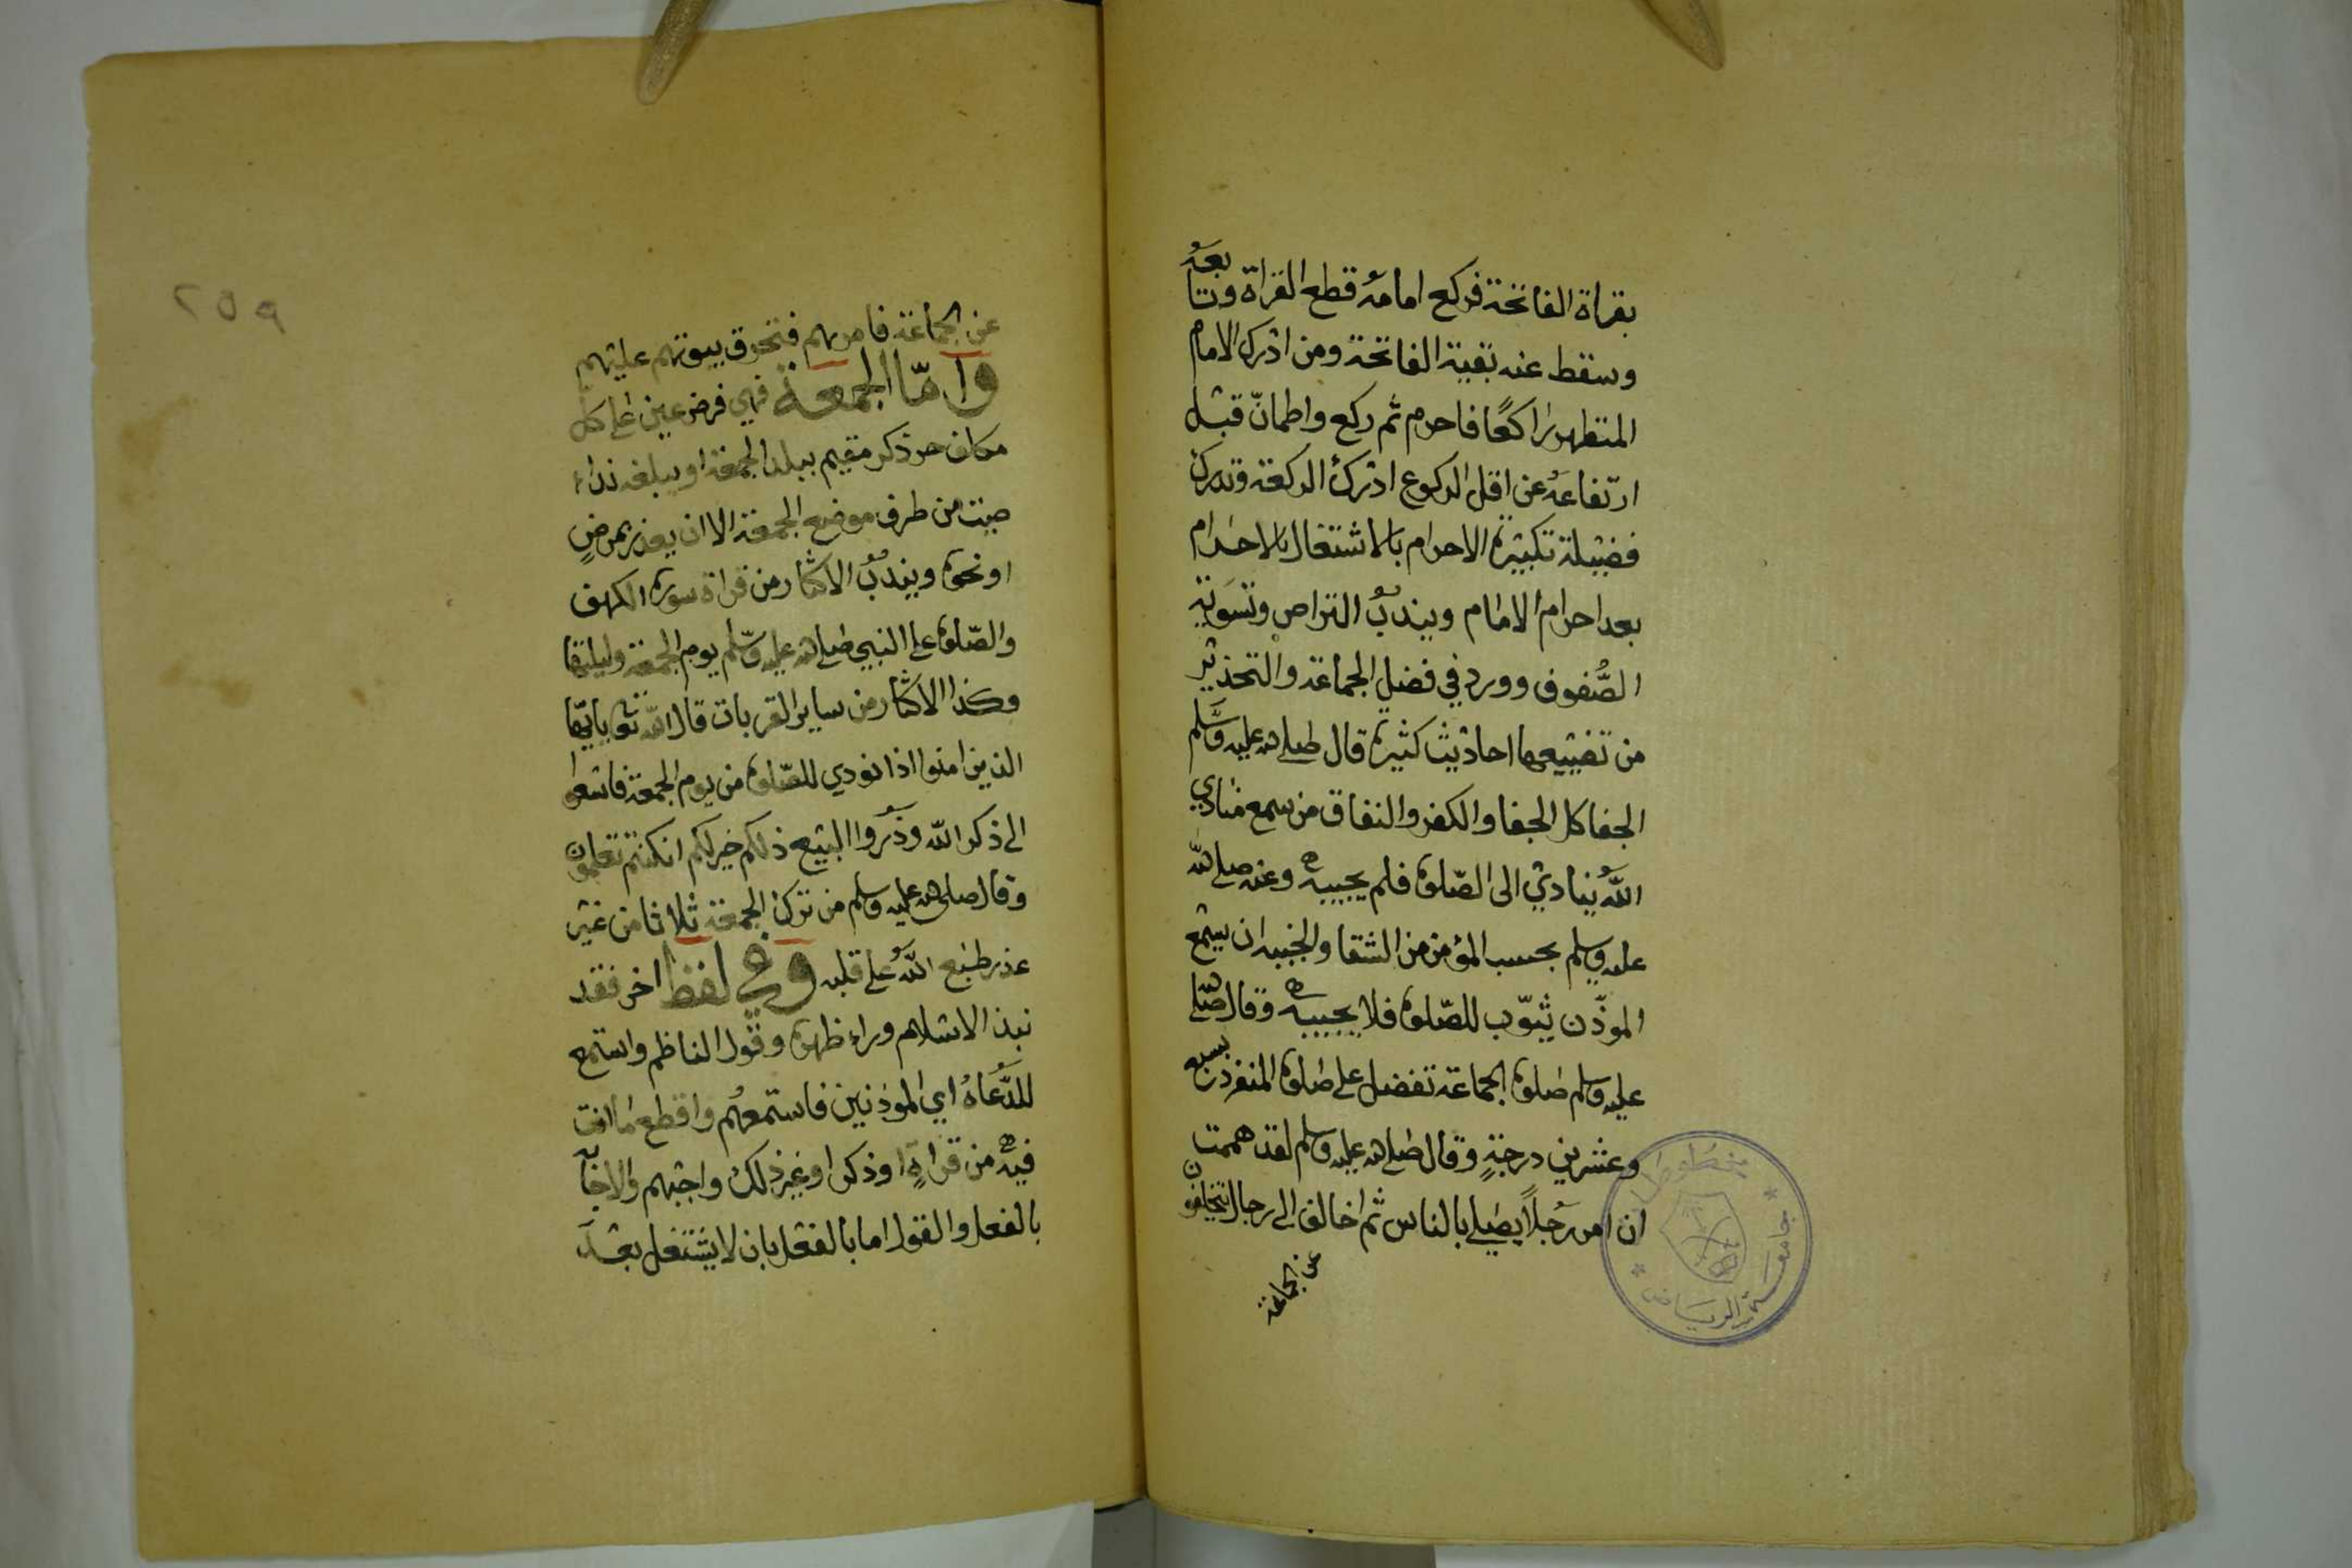 بقراة الفاتحة فركع امامه قطع القراة وتابعه
وسقط عنه بقية الفاتحة ومن ادرك الامام
المتطهر راكعًا فاحرم ثم ركع واطمانّ قبل
ارتفاعه عن اقل الركوع ادرك الركعة وتدرك
فضيلة تكبيرة الاحرام بالاشتغال بالاحرام
بعد احرام الامام ويندبُ التراص وتسوية
الصُّفوف وورد في فضل الجماعة والتحذير
من تضييعها احاديث كثيرة قال صلى الله عليه وسَّلم
الجفا كل الجفا والكفر والنفاق من سمع منادي
اللهُ ينادي الى الصّلوة فلم يجيبه وعنه صلى الله
عليه وسلم بحسب المؤمن من الشقا والخيبه ان يسمع
الموذّن يثوّب للصّلوة فلا يجيبه وقال صلى الله
عليه وسلم صلوة الجماعة تفضل على صلوة المنفرد بسبع
وعشرين درجةٍ وقال صلى الله عليه وسلم لقد هممت
ان امر رَجلاً يصلي بالناس ثم اخالف الى رجال يتخلفون
عن الجماعة
مخطوطات
جامعة الرياض
٢٥٩
عن الجماعة فامر بهم فتحرق بيوتهم عليهم
وامّا الجمعة فهي فرض عين على كل
مكلف حر ذكر مقيم ببلد الجمعة او يبلغه نداء
صيت من طرف موضع الجمعة الا ان يعذر بمرضٍ
او نحوه ويندبُ الاكثار من قراة سورة الكهف
والصّلوة على النبي صلى الله عليه وسّلم يوم الجمعة وليلتها
وكذا الاكثار من ساير القربات قال الله تعٰ يايّها
الذين امنوا اذا نودي للصّلوة من يوم الجمعة فاسعوا
الى ذكر الله وذَروا البيع ذلكم خير لكم ان كنتم تعلمون
وقال صلى الله عليه وسلم من ترك الجمعة ثلاثا من غير
عذر طبع اللهُ على قلبه وفي لفظ اخر فقد
نبذ الاسلام وراء ظهره وقول الناظم واستمع
للدَّعاهُ اي الموذنين فاستمعهُم واقطع ما انت
فيه من قراةٍ او ذكر او غير ذلك واجبهم والاجابة
بالفعل والقول اما بالفعل بان لا يشتغل بعد